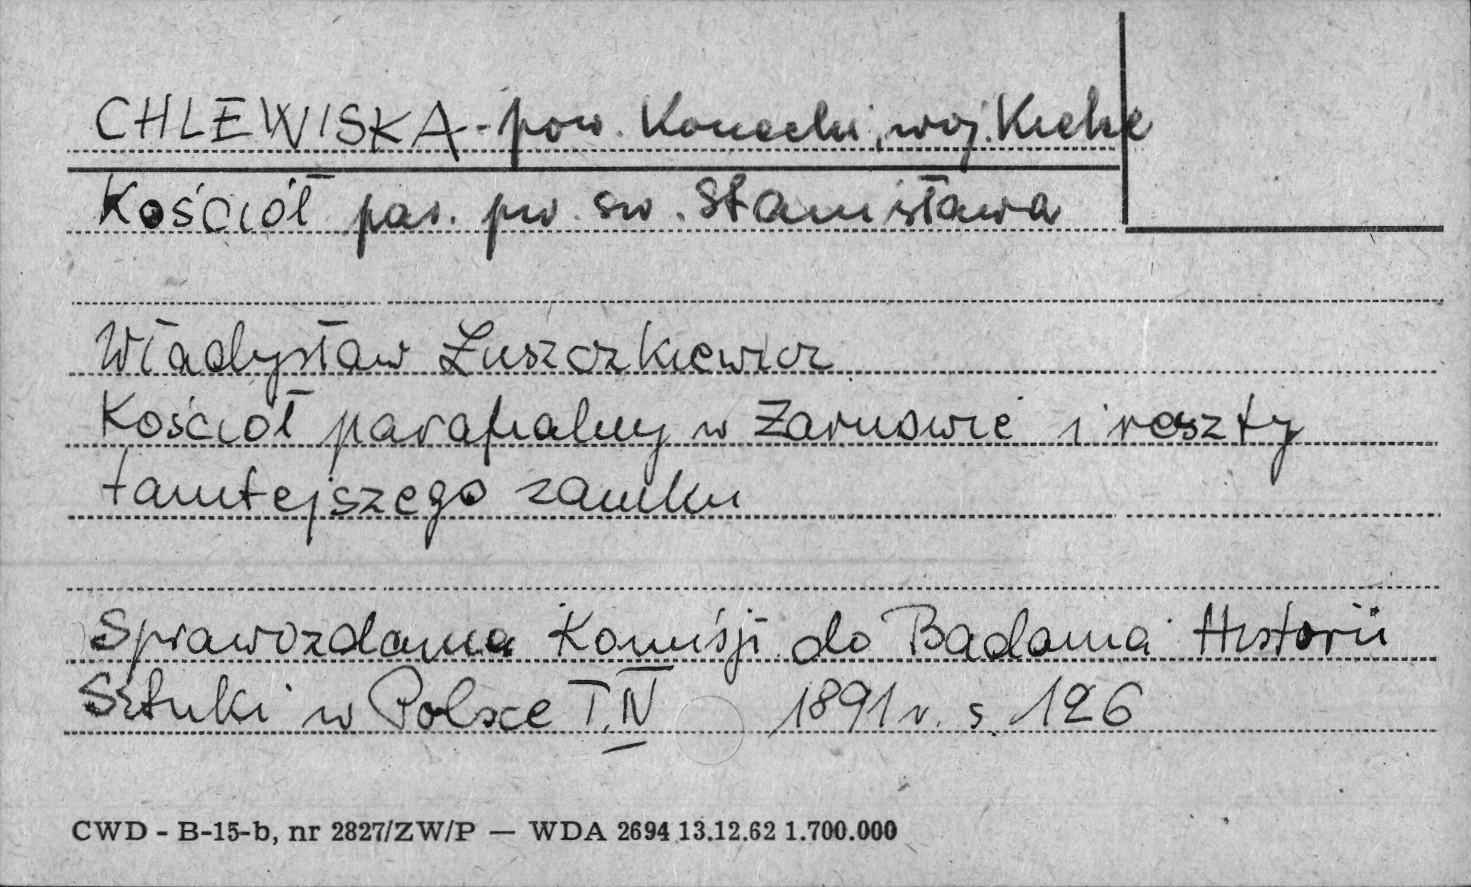 CHLEWISKA - pow. Konecki, woj. Kielce
Kościół par. pw. św. Stanisława
Władysław Łuszczkiewicz
Kościół parafialny w Żarnowie i reszty
tamtejszego zamku
Sprawozdania Komisji do Badania Historii
Sztuki w Polsce T. IV 1891 r. s. 126
CWD - B-15-b, nr 2827/ZW/P — WDA 2694 13.12.62 1.700.000